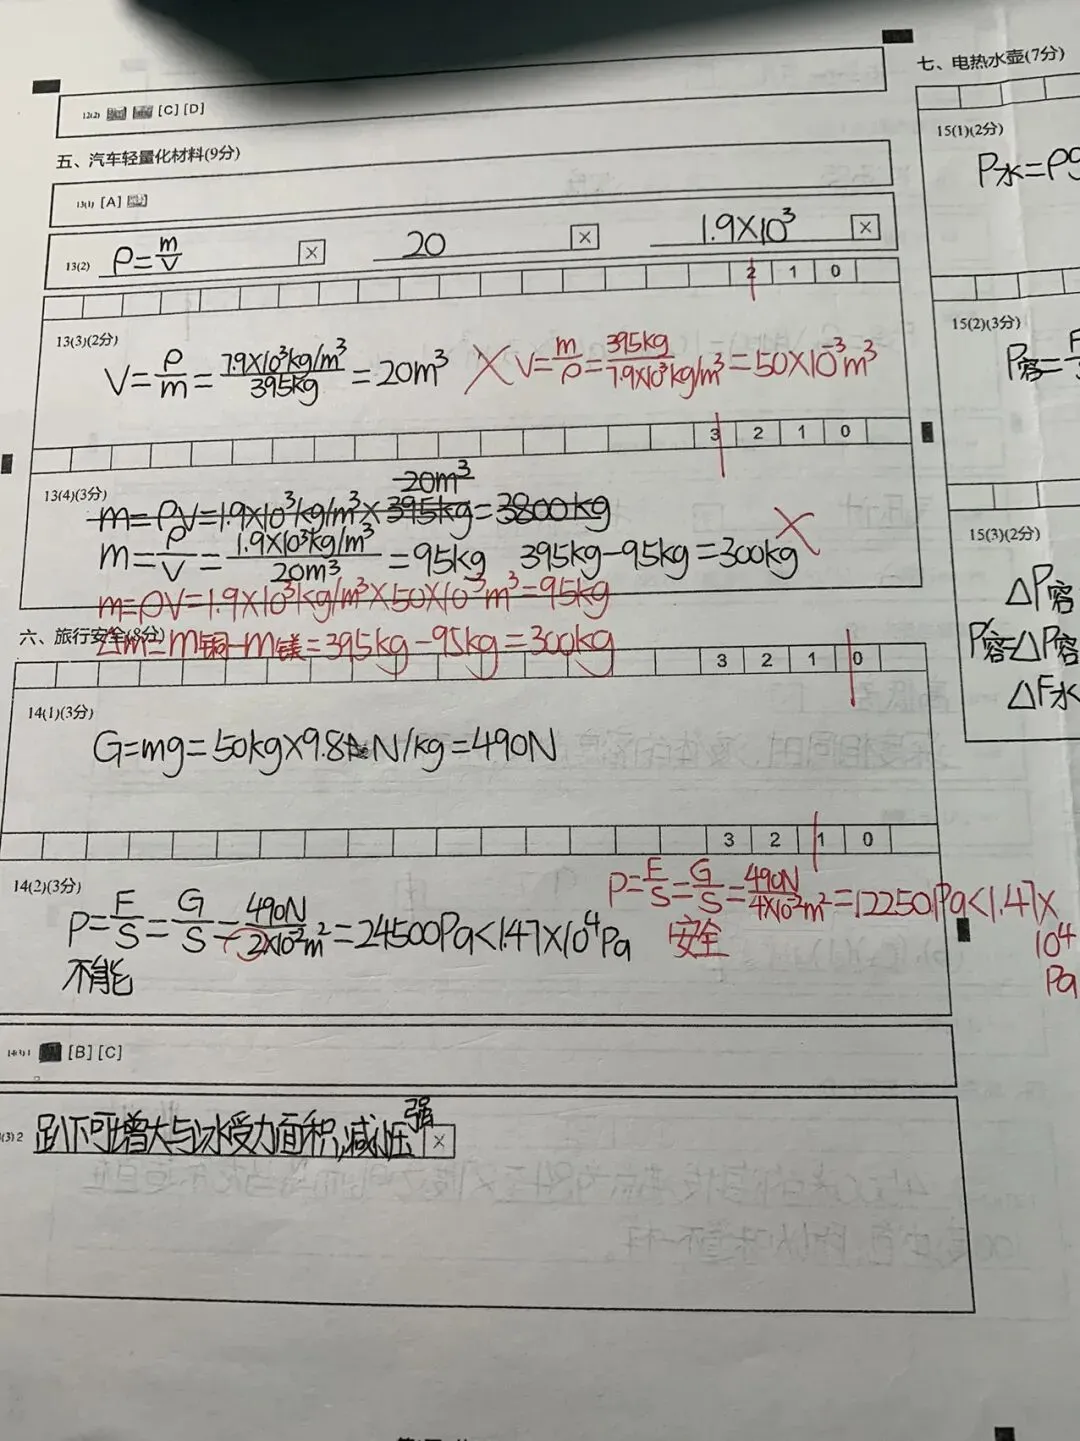 12(2) [C] [D]
五、汽车轻量化材料(9分)
13(1) [A]
13(2) ρ=m/V × 20 × 1.9×10³ ×
2 1 0
13(3)(2分)
V=ρ/m=7.9×10³kg/m³/395kg=20m³ × V=m/ρ=395kg/7.9×10³kg/m³=50×10⁻³m³
3 2 1 0
13(4)(3分)
20m³
m=ρV=1.9×10³kg/m³×395kg=3800kg
m=ρ/V=1.9×10³kg/m³/20m³=95kg 395kg-95kg=300kg ×
m=ρV=1.9×10³kg/m³×50×10⁻³m³=95kg
六、旅行安全(8分)
△m=m钢-m镁=395kg-95kg=300kg
3 2 1 0
14(1)(3分)
G=mg=50kg×9.8N/kg=490N
3 2 1 0
14(2)(3分)
P=F/S=G/S=490N/4×10⁻²m²=12250Pa<1.47×10⁴Pa
安全
P=F/S=G/S=490N/2×10⁻²m²=24500Pa<1.47×10⁴Pa
不能
[B] [C]
(3) 2 趴下可增大与冰受力面积,减小压强 ×
七、电热水壶(7分)
15(1)(2分)
P水=ρg
15(2)(3分)
P容=F
15(3)(2分)
△P容
P容=△P容
△F水